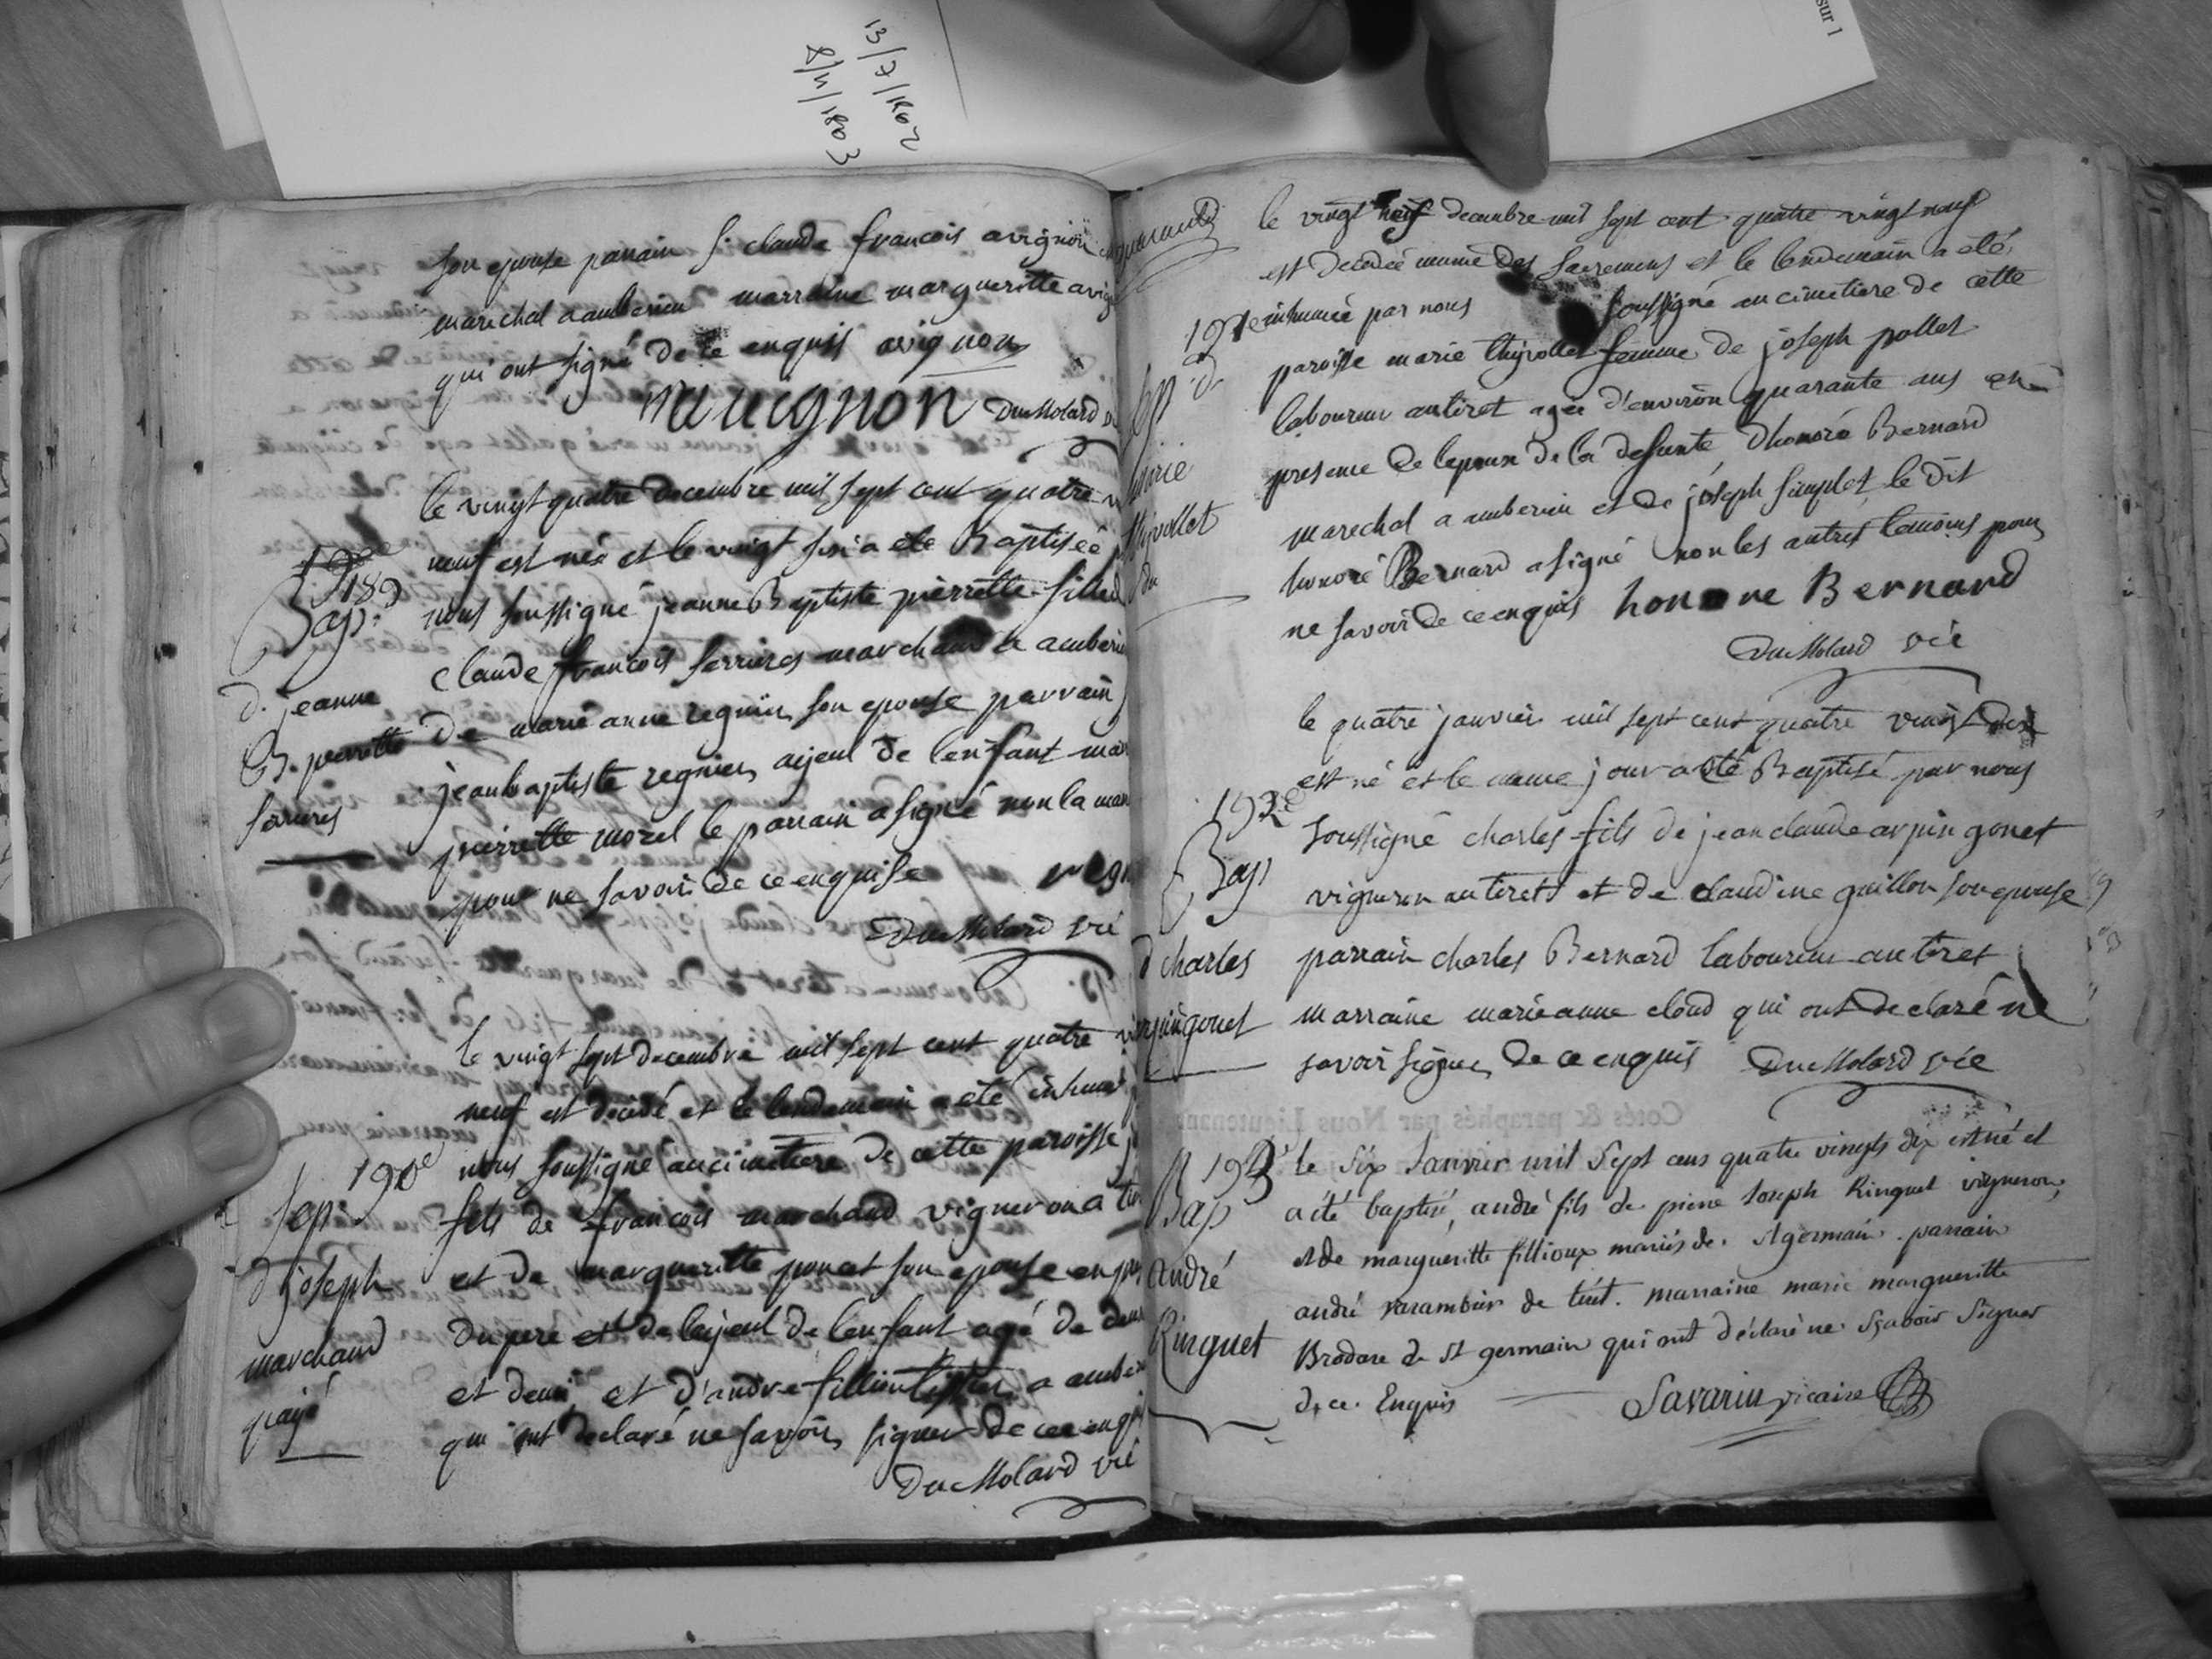 13/7/1802
8/4/1803
sur 1
son epouse parrain sr claude francois avignon
marechal a amberieu marraine margueritte avig
qui ont signé de ce enquis avignon
m avignon DuMolard
le vingt quatre decembre mil sept cent quatre
neuf est née et le vingt six a été Baptiseé
nous soussigné jeanne Baptiste pierrette fille
claude francois ferrieres marchand a amberieu
de marie anne regnier son epouse parrain
jeanbaptiste regnier ayeul de l'enfant mar
pierrette morel le parrain a signé non la mar
pour ne savoir de ce enquise regn
DuMolard vic
189
Bap:
d. jeanne
B. pierrette
ferrieres
le vingt sept decembre mil sept cent quatre
neuf est decédé et le lendemain a été inhumé
nous soussigné au cimetiere de cette paroisse
fils de francois marchand vigneron a
et de margueritte poncet son epouse en
du pere et de layeul de lenfant agé de deux
et demi et d'andre fillion a
qui ont declaré ne savoir signer de ce enqui
DuMolard vic
190e
Sep:
d joseph
marchand
payé
le vingt neuf decembre mil sept cent quatre vingt neuf
est decedée munie des sacremens et le lendemain a été
inhumée par nous soussigné au cimetiere de cette
paroisse marie thyvollet femme de joseph pollet
laboureur au tiret agée d'environ quarante ans en
presence de lepoux de la defunte d'honoré Bernard
marechal a amberieu et de joseph simplet le dit
honoré Bernard a signé non les autres temoins pour
ne savoir de ce enquis honore Bernard
DuMolard vic
191e
Sep d
marie
thyvollet
le quatre janvier mil sept cent quatre vingt dix
est né et le meme jour a été Baptisé par nous
soussigné charles fils de jean claude arpin gonet
vigneron au tiret et de claudine guillon son epouse
parrain charles Bernard laboureur au tiret
marraine marieanne cloud qui ont declaré ne
savoir signer de ce enquis DuMolard vic
192e
Bap
d charles
arpingonet
Cotés & paraphés par Nous Lieutenant
193e
Bap
André
Ringuet
le six Janvier mil sept cens quatre vingts dix est né et
a été baptisé, andré fils de pierre Joseph Ringuet vigneron,
et de margueritte fillioux mariés de St germain. parrain
andré varambier de tiret. marraine marie margueritte
Brodare de St germain qui ont déclaré ne sçavoir signer
de ce Enquis Savarin vicaire